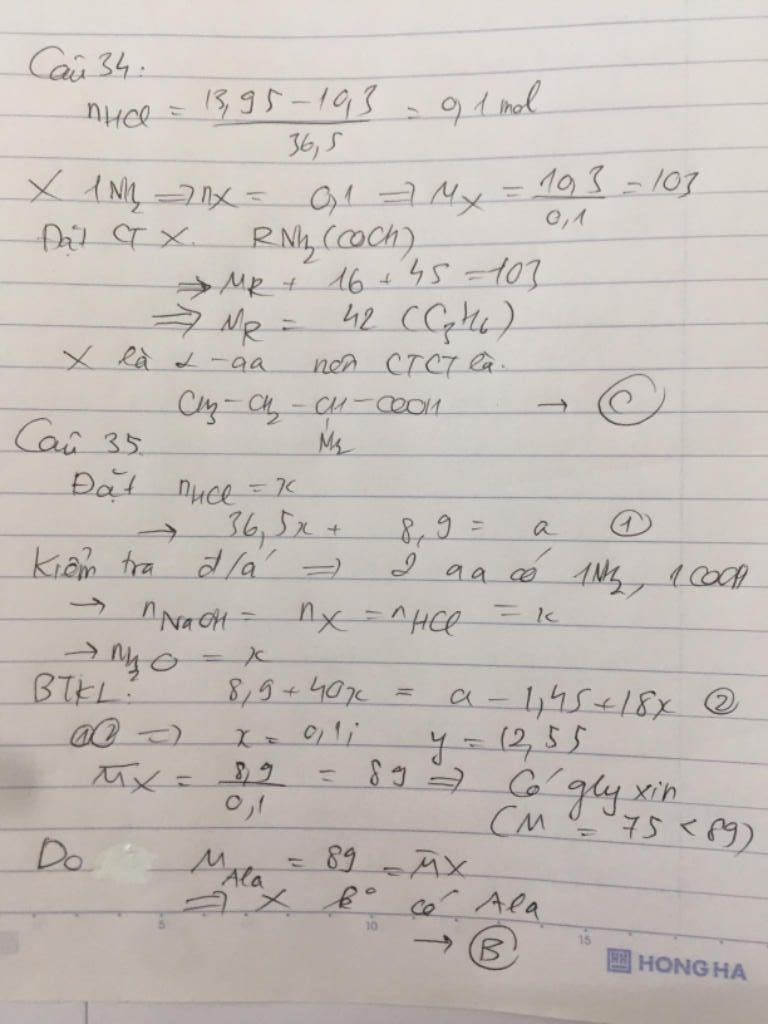 Câu 34:
nHCl = 13,95 – 10,3 / 36,5 = 0,1 mol
X 1NH2 => nX = 0,1 => MX = 10,3 / 0,1 = 103
Đặt CT X. RNH2(COOH)
=> MR + 16 + 45 = 103
=> MR = 42 (C3H6)
X là α-aa nên CTCT là.
CH3 – CH2 – CH – COOH → C
NH2
Câu 35
Đặt nHCl = x
→ 36,5x + 8,9 = a ①
Kiểm tra đ/á => 2 aa có 1NH2, 1COOH
→ nNaOH = nX = nHCl = x
→ nH2O = x
BTKL: 8,9 + 40x = a – 1,45 + 18x ②
①② => x = 0,1; y = 12,55
M̄X = 8,9 / 0,1 = 89 => Có glyxin
(M = 75 < 89)
Do MAla = 89 = M̄X
=> X k° có Ala
→ B
5 10 15
HH HONG HA